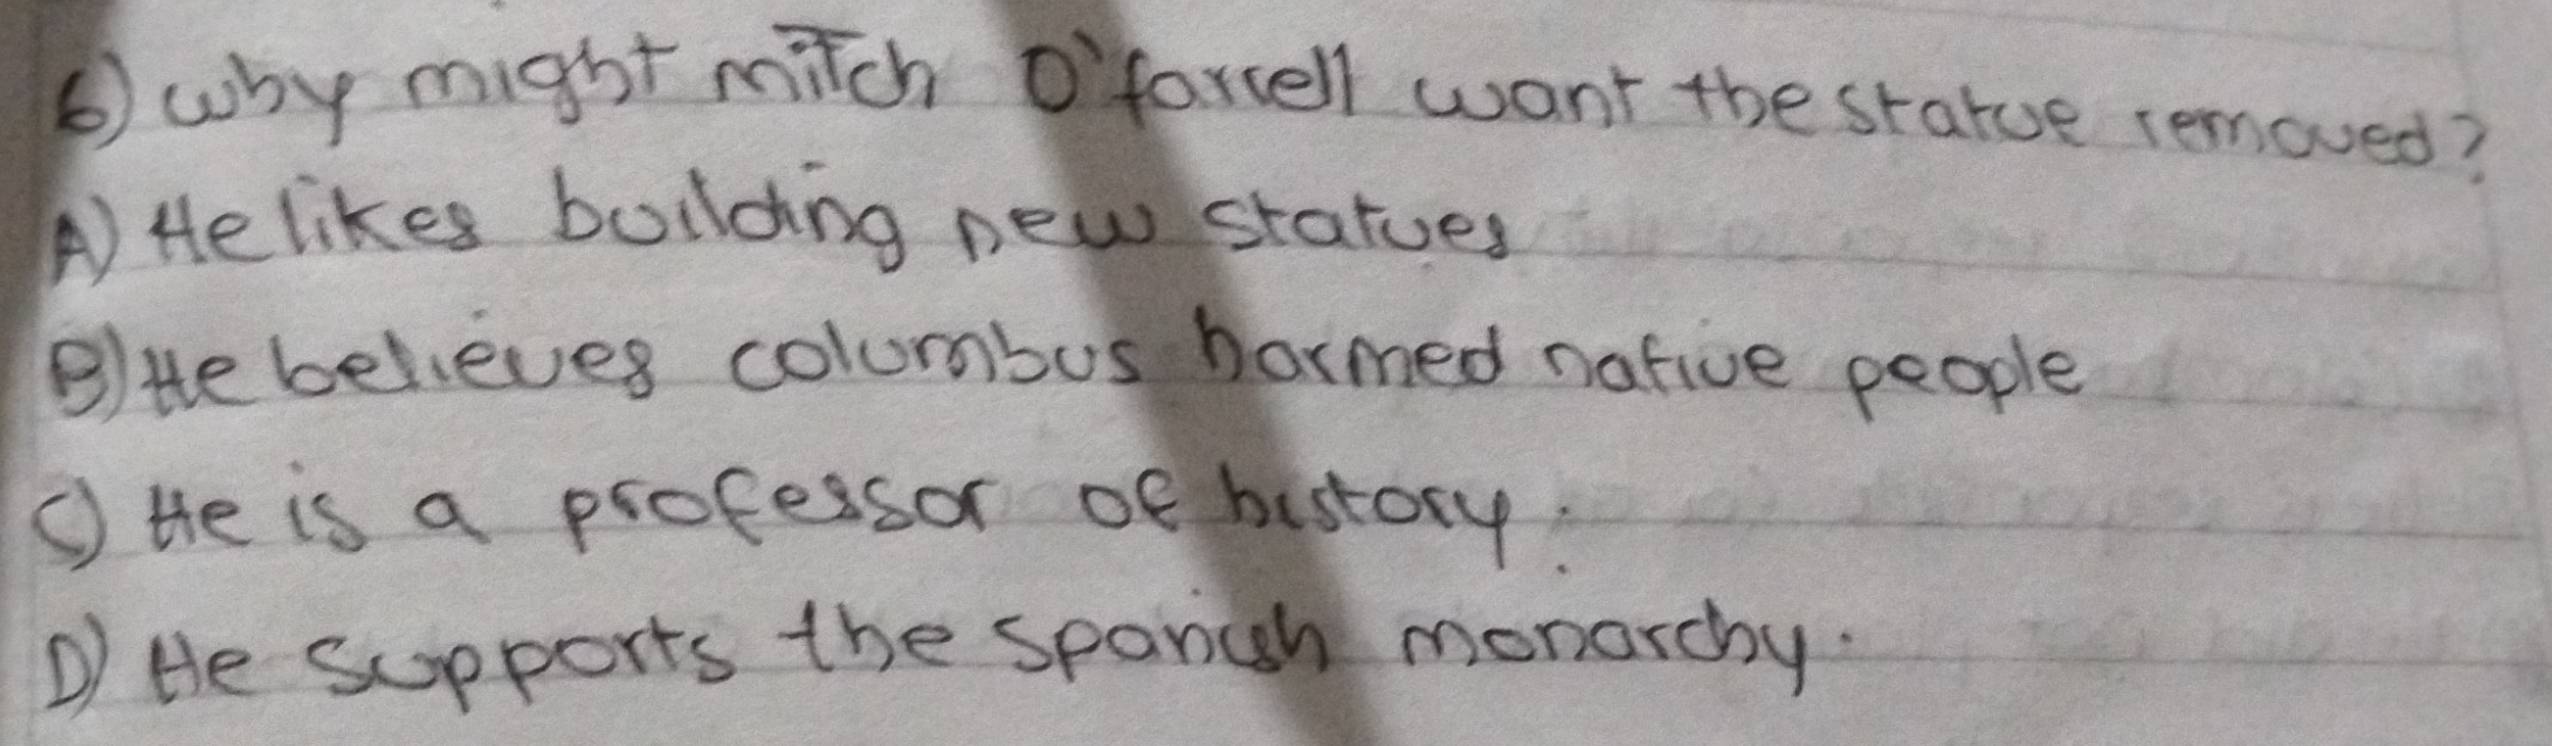 6) why might mitch O'farrell want the statue removed?
A) He likes building new statues
B) He believes columbus harmed native people
C) He is a professor of history.
D) He supports the spanish monarchy.